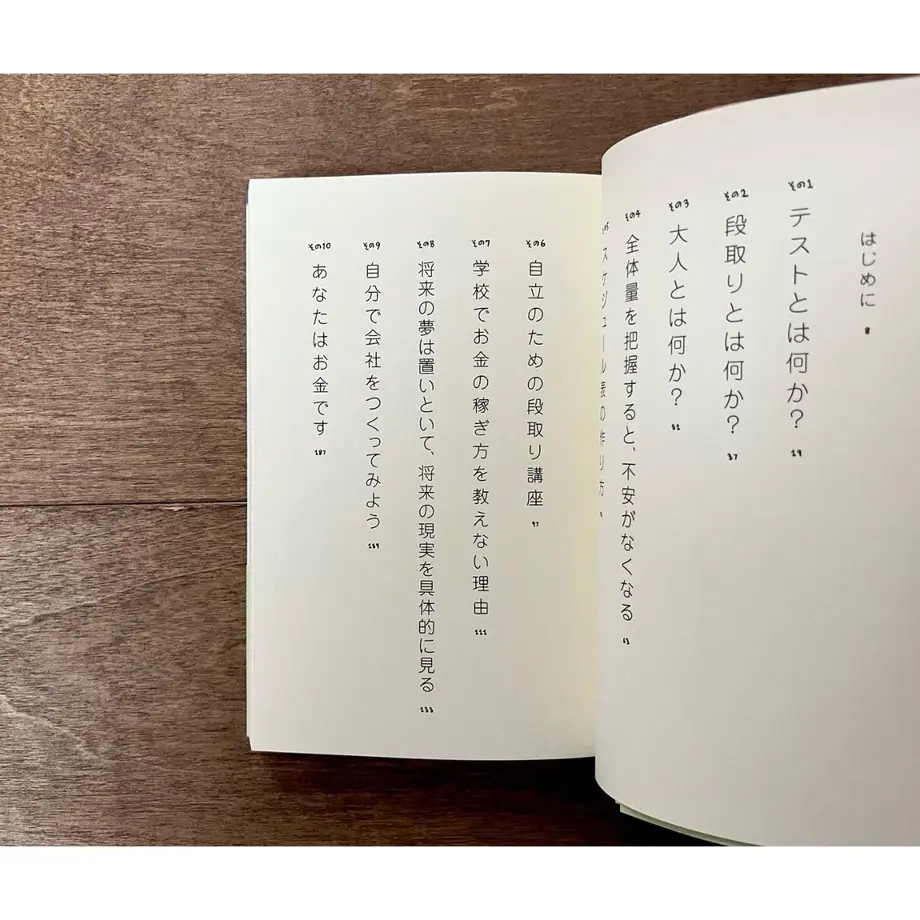 はじめに 8
その1 テストとは何か? 19
その2 段取りとは何か? 37
その3 大人とは何か? 51
その4 全体量を把握すると、不安がなくなる 63
スケジュール表の作り方
その6 自立のための段取り講座 97
その7 学校でお金の稼ぎ方を教えない理由 111
その8 将来の夢は置いといて、将来の現実を具体的に見る 133
その9 自分で会社をつくってみよう 159
その10 あなたはお金です 187